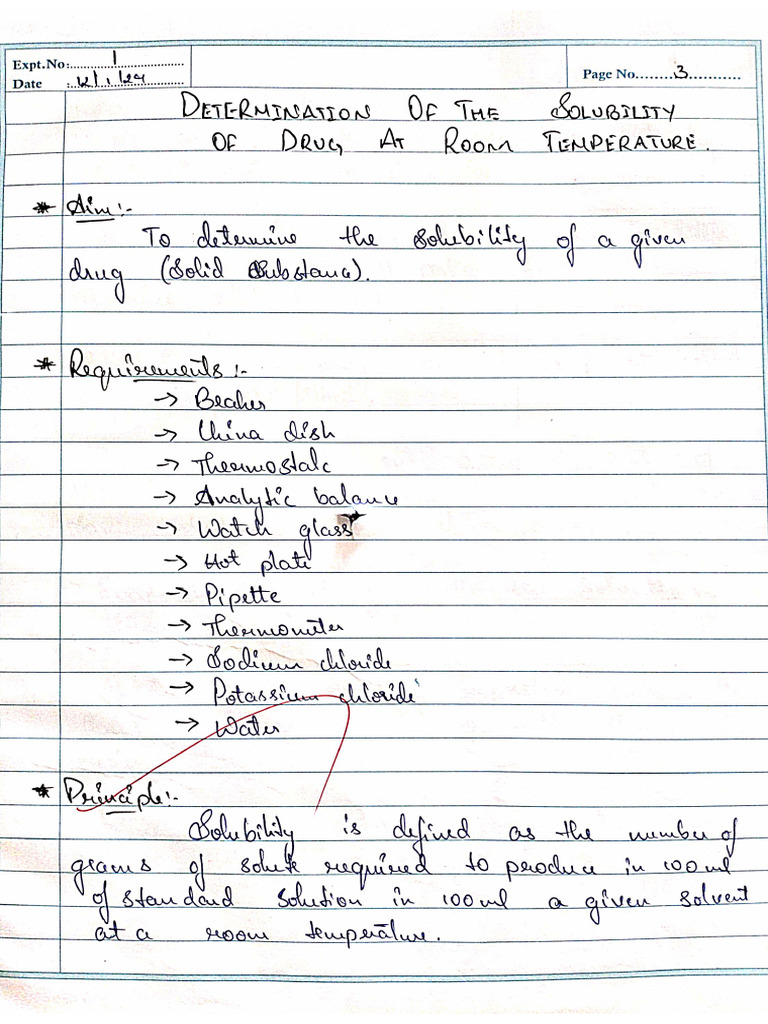 Expt.No:............1.................
Date :..12/1/24..........
Page No........3...........
DETERMINATION OF THE SOLUBILITY
OF DRUG AT ROOM TEMPERATURE.
* Aim:-
To determine the solubility of a given
drug (Solid Substance).
* Requirements :-
→ Beaker
→ China dish
→ Thermostate
→ Analytic balance
→ Watch glass
→ Hot plate
→ Pipette
→ Thermometer
→ Sodium chloride
→ Potassium chloride
→ Water
* Principle:-
Solubility is defined as the number of
grams of solute required to produce in 100 ml
of standard solution in 100 ml a given solvent
at a room temperature.